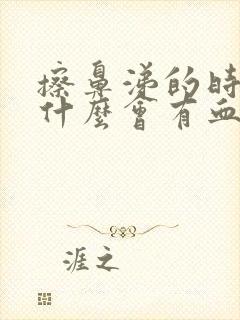 擦鼻涕的時
什麼會有血
涯之